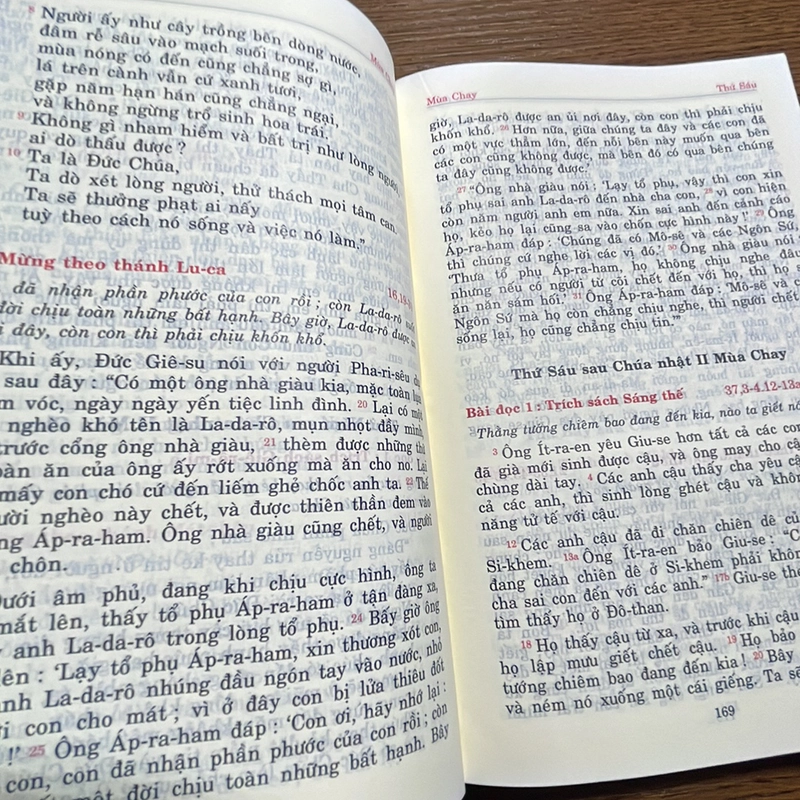 8 Người ấy như cây trồng bên dòng nước,
đâm rễ sâu vào mạch suối trong,
mùa nóng có đến cũng chẳng sợ gì,
lá trên cành vẫn cứ xanh tươi,
gặp năm hạn hán cũng chẳng ngại,
và không ngừng trổ sinh hoa trái.
9 Không gì nham hiểm và bất trị như lòng người,
ai dò thấu được ?
10 Ta là Đức Chúa,
Ta dò xét lòng người, thử thách mọi tâm can.
Ta sẽ thưởng phạt ai nấy
tuỳ theo cách nó sống và việc nó làm.”
Mừng theo thánh Lu-ca
đã nhận phần phước của con rồi ; còn La-da-rô suốt
đời chịu toàn những bất hạnh. Bây giờ, La-da-rô được an
đây, còn con thì phải chịu khốn khổ.
Khi ấy, Đức Giê-su nói với người Pha-ri-sêu
sau đây : “Có một ông nhà giàu kia, mặc toàn
vóc, ngày ngày yến tiệc linh đình. 20 Lại có một
nghèo khó tên là La-da-rô, mụn nhọt đầy mình,
trước cổng ông nhà giàu, 21 thèm được những thứ
bàn ăn của ông ấy rớt xuống mà ăn cho no. Lại
mấy con chó cứ đến liếm ghẻ chốc anh ta. 22 Thế
người nghèo này chết, và được thiên thần đem vào
Áp-ra-ham. Ông nhà giàu cũng chết, và người
chôn.
Dưới âm phủ, đang khi chịu cực hình, ông ta
mắt lên, thấy tổ phụ Áp-ra-ham ở tận đàng xa,
anh La-da-rô trong lòng tổ phụ. 24 Bấy giờ ông
lên : ‘Lạy tổ phụ Áp-ra-ham, xin thương xót con,
anh La-da-rô nhúng đầu ngón tay vào nước, nhỏ
con cho mát ; vì ở đây con bị lửa thiêu đốt
!’ 25 Ông Áp-ra-ham đáp : ‘Con ơi, hãy nhớ lại :
con, con đã nhận phần phước của con rồi ; còn
một đời chịu toàn những bất hạnh. Bây
Mùa Chay Thứ Sáu
giờ, La-da-rô được an ủi nơi đây, còn con thì phải chịu
khốn khổ. 26 Hơn nữa, giữa chúng ta đây và các con đã
có một vực thẳm lớn, đến nỗi bên này muốn qua bên
các con cũng không được, mà bên đó có qua bên chúng
ta đây cũng không được.’
27 “Ông nhà giàu nói : ‘Lạy tổ phụ, vậy thì con xin
tổ phụ sai anh La-da-rô đến nhà cha con, 28 vì con hiện
còn năm người anh em nữa. Xin sai anh đến cảnh cáo
họ, kẻo họ lại cũng sa vào chốn cực hình này !’ 29 Ông
Áp-ra-ham đáp : ‘Chúng đã có Mô-sê và các Ngôn Sứ,
thì chúng cứ nghe lời các vị đó.’ 30 Ông nhà giàu nói :
‘Thưa tổ phụ Áp-ra-ham, họ không chịu nghe đâu,
nhưng nếu có người từ cõi chết đến với họ, thì họ sẽ
ăn năn sám hối.’ 31 Ông Áp-ra-ham đáp : ‘Mô-sê và các
Ngôn Sứ mà họ còn chẳng chịu nghe, thì người chết
sống lại, họ cũng chẳng chịu tin.’”
Thứ Sáu sau Chúa nhật II Mùa Chay
Bài đọc 1 : Trích sách Sáng thế 37,3-4.12-13a
Thằng tướng chiêm bao đang đến kia, nào ta giết nó
3 Ông Ít-ra-en yêu Giu-se hơn tất cả các con
đã già mới sinh được cậu, và ông may cho cậu
chùng dài tay. 4 Các anh cậu thấy cha yêu cậu
cả các anh, thì sinh lòng ghét cậu và không
năng tử tế với cậu.
12 Các anh cậu đã đi chăn chiên dê
Si-khem. 13a Ông Ít-ra-en bảo Giu-se :
đang chăn chiên dê ở Si-khem phải không
cha sai con đến với các anh.” 17b Giu-se
tìm thấy họ ở Đô-than.
18 Họ thấy cậu từ xa, và trước khi cậu
họ lập mưu giết chết cậu. 19 Họ bảo
tướng chiêm bao đang đến kia ! 20 Bây
và ném nó xuống một cái giếng. Ta sẽ
169